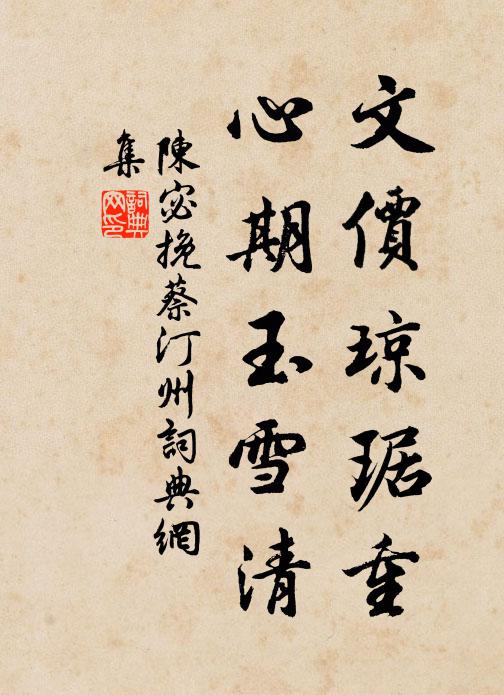 文價琼琚重
心期玉雪清
陳宓挽蔡汀州詞典網
集
詞典
网印